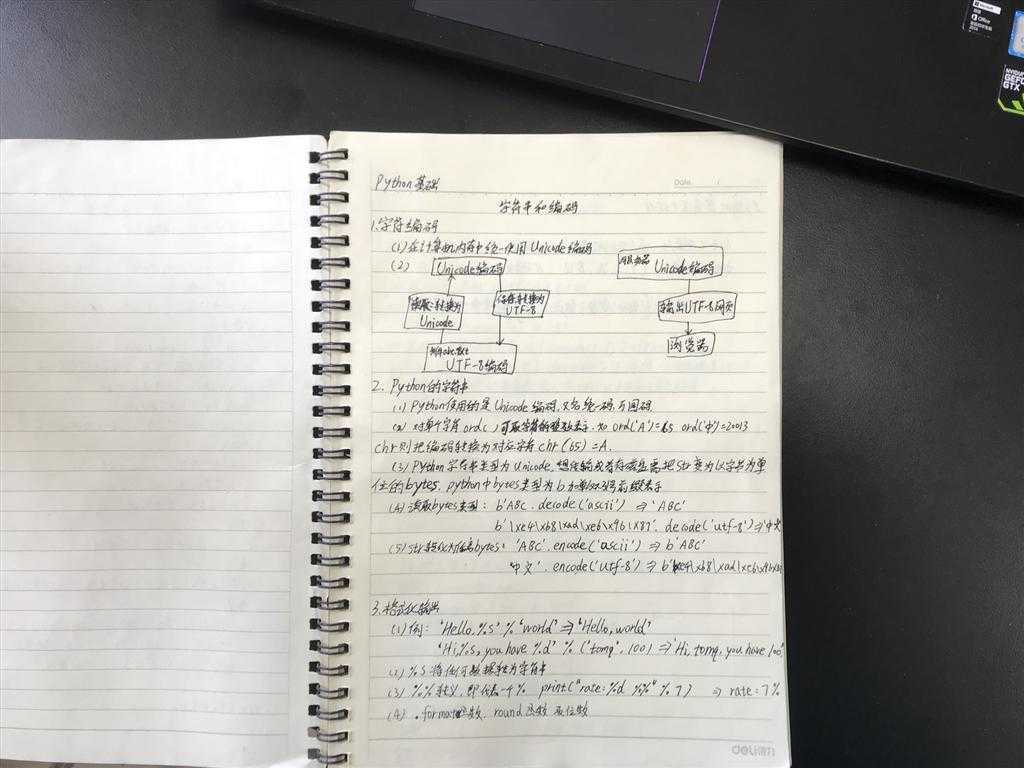 Office
GTX
Date.
Python基础
字符串和编码
1.字符编码
(1) 在计算机内存中统一使用 Unicode编码
(2)
Unicode编码
读取:转换为
Unicode
保存:转换为
UTF-8
UTF-8编码
服务器
Unicode编码
输出UTF-8网页
浏览器
2. Python的字符串
(1) Python使用的是Unicode编码,又名统一码,万国码
(2) 对单个字符ord( )可取字符的整数表示,如ord('A')=65 ord('中')=20013
chr则把编码转换为对应字符chr(65)=A.
(3) Python字符串类型为Unicode,想传输或者存磁盘需把str变为以字节为单
位的bytes, python中bytes类型为b加单/双引号前缀表示
(4) 读取bytes类型: b'ABC.decode('ascii') ⇒ 'ABC'
b'\xe4\xb8\xad\xe6\x96\x87'.decode('utf-8')⇒'中文
(5) str转化为bytes: 'ABC'.encode('ascii') ⇒ b'ABC'
'中文'.encode('utf-8') ⇒ b'\xe4\xb8\xad\xe6\x96\x8
3.格式化输出
(1) 例: 'Hello,%s' % 'world' ⇒ 'Hello,world'
'Hi,%s,you have %d' % ('tomp',100) ⇒ 'Hi,tomp,you have 100'
(2) %s将任何数据转为字符串
(3) %%转义,即代表一个% print("rate:%d %%" % 7) ⇒ rate:7%
(4) .format函数, round函数
deli得力